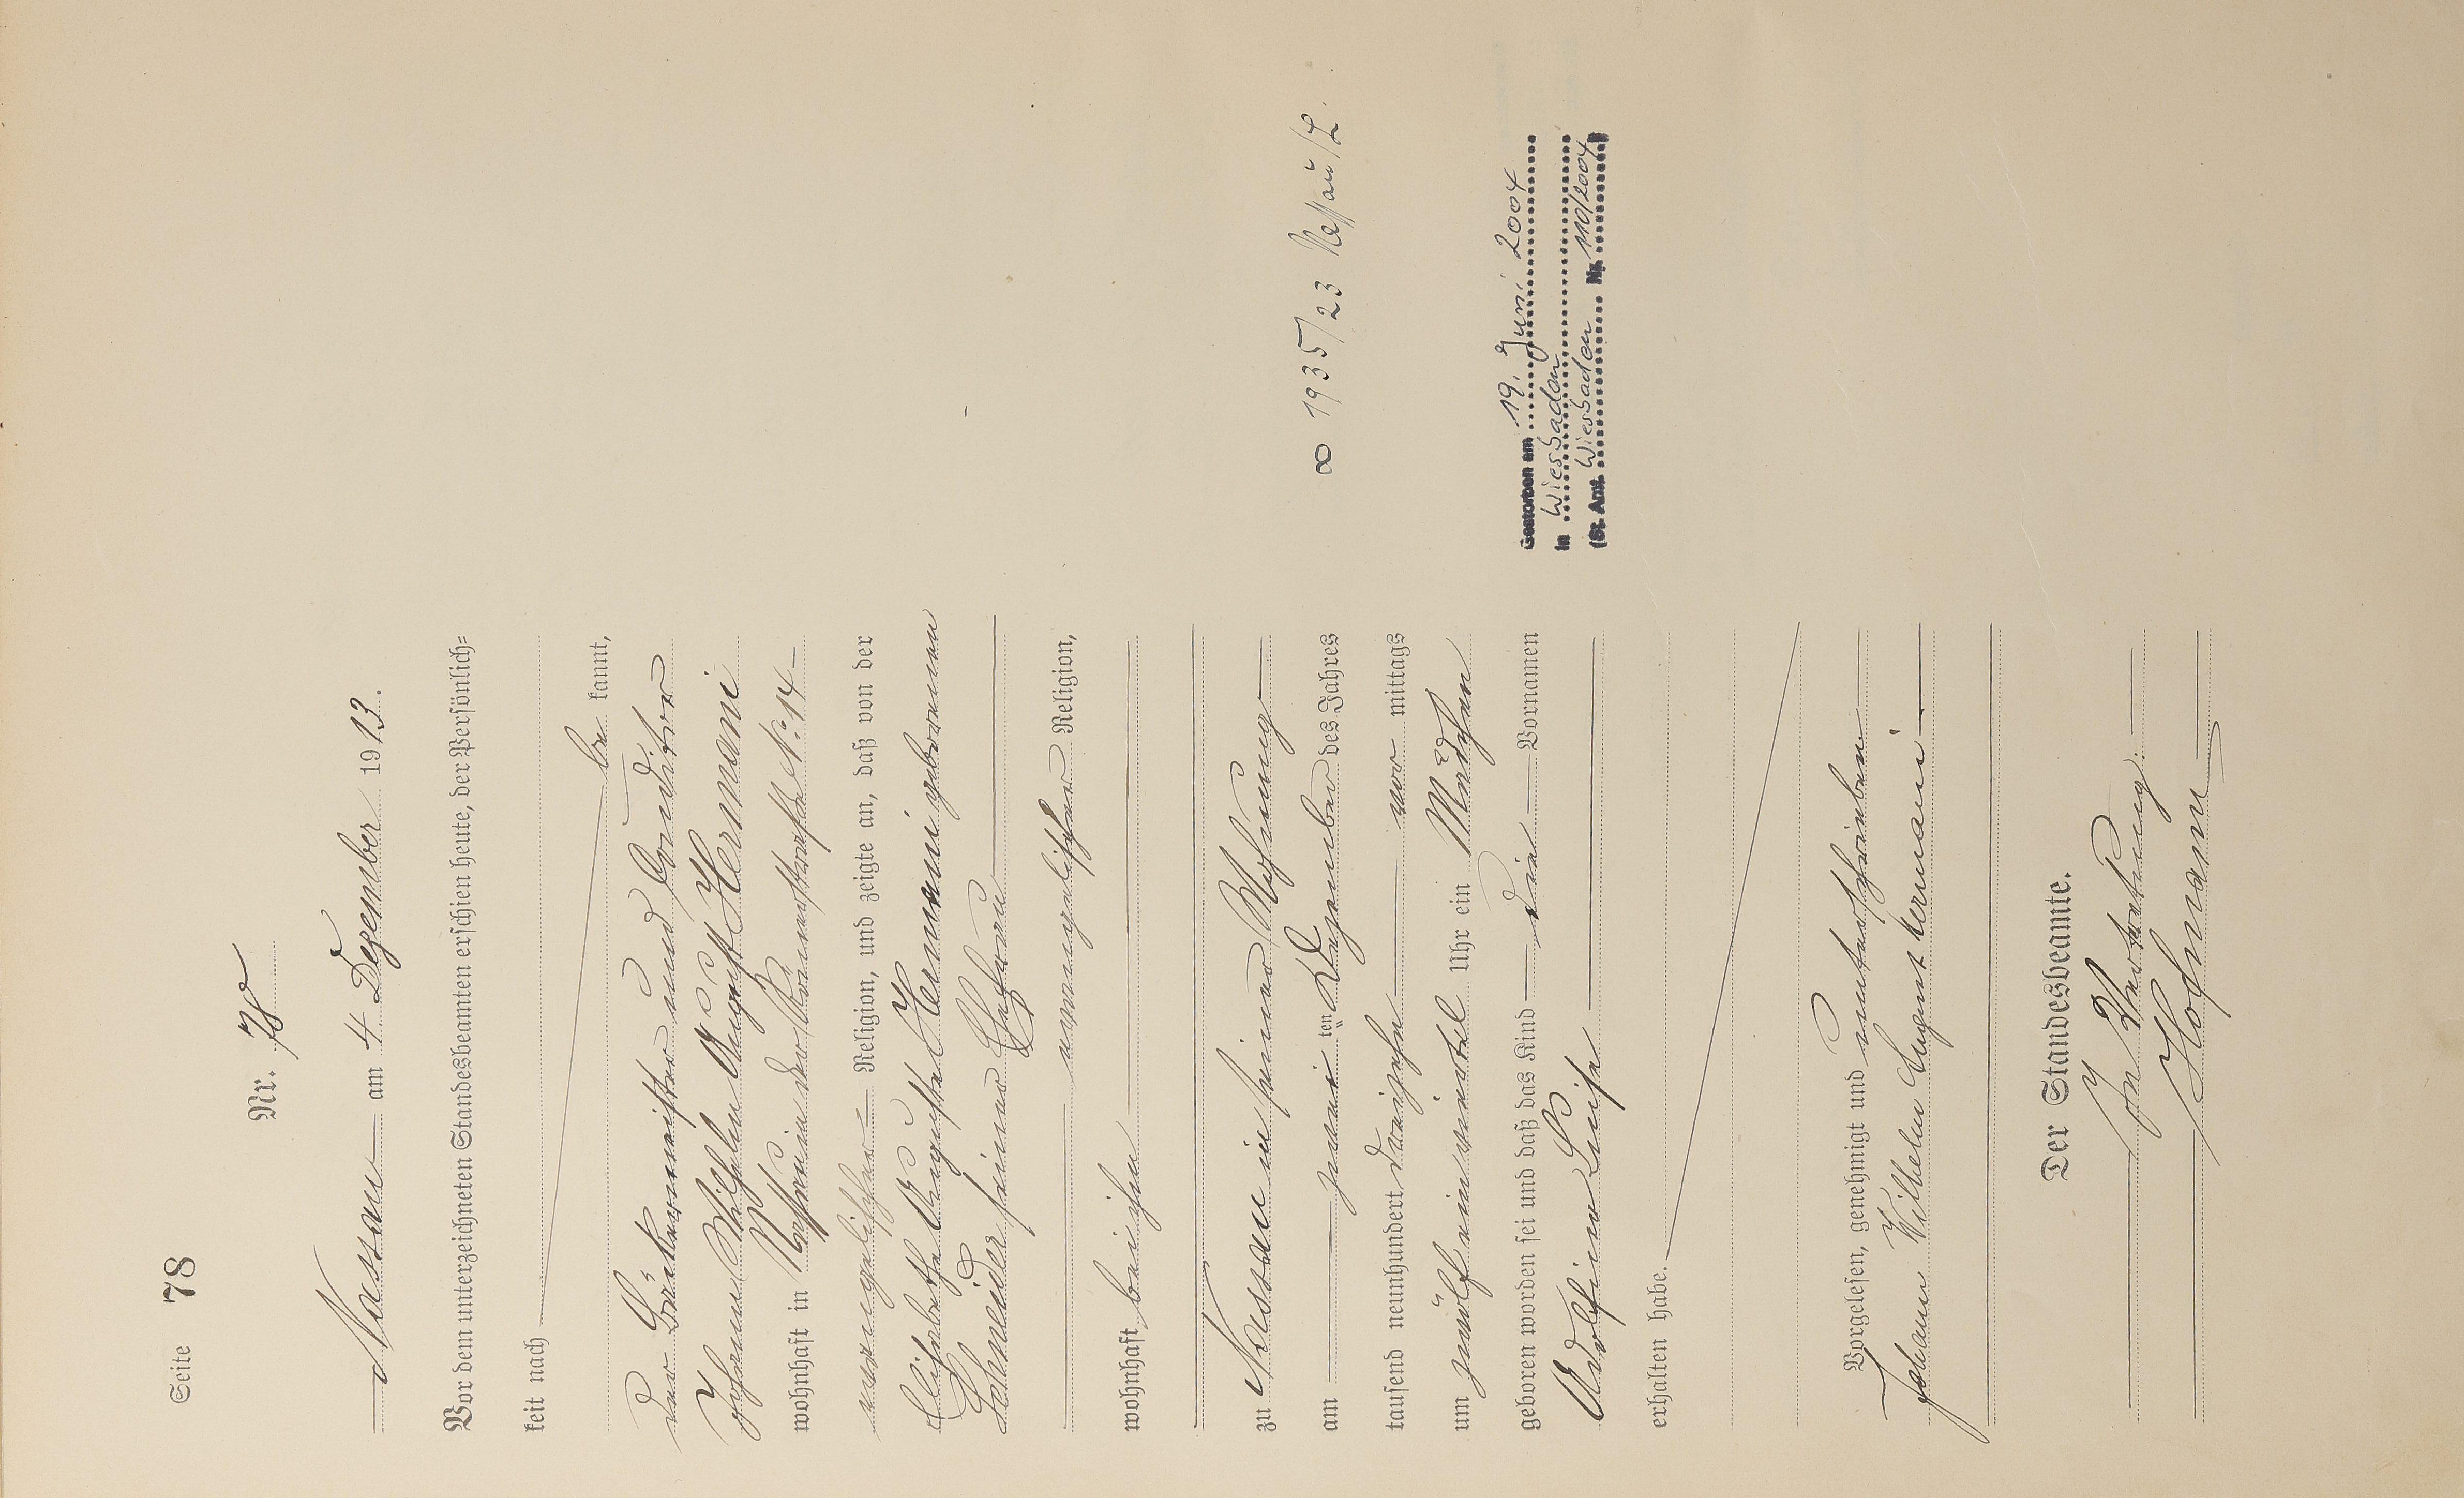 Seite 78
Nr. 78
Nassau am 4 Dezember 1913.
Vor dem unterzeichneten Standesbeamten erschien heute, der Persönlich=
keit nach be kannt,
der Bäckermeister und Conditor
Johann Wilhelm August Hermani
wohnhaft in Nassau in der Römerstraße No 14
evangelischer Religion, und zeigte an, daß von der
Elisabetha Auguste Hermani geborenen
Schneider seiner Ehefrau
evangelischer Religion,
wohnhaft bei ihm
zu Nassau in seiner Wohnung
am zwei ten Dezember des Jahres
tausend neunhundert dreizehn vor mittags
um zwölf ein viertel Uhr ein Mädchen
geboren worden sei und daß das Kind die Vornamen
Adolfine Luise
erhalten habe.
Vorgelesen, genehmigt und unterschrieben
Johann Wilhelm August Hermani
Der Standesbeamte.
In Vertretung.
Hofmann
∞ 1935/23 Nassau/L.
Gestorben am 19. Juni 2004
in Wiesbaden
(St. Amt. Wiesbaden Nr. /2004)